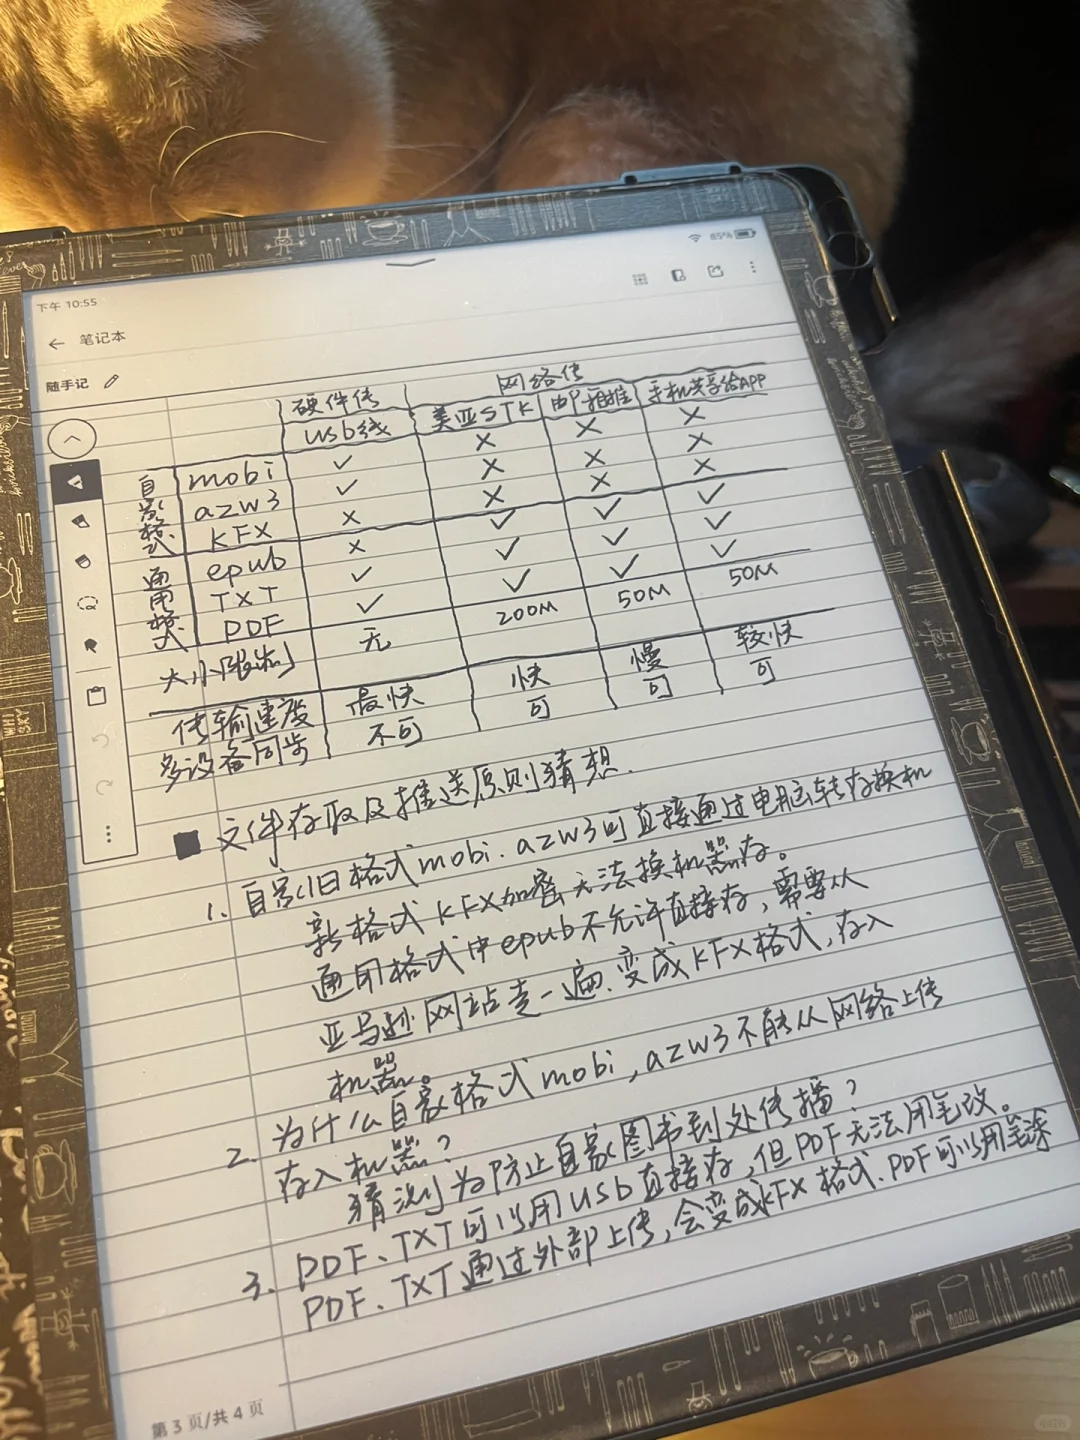 下午 10:55
85%
← 笔记本
随手记
硬件传 网络传
usb线 美亚STK 邮箱推 手机共享给APP
自家格式
mobi ✓ × × ×
azw3 ✓ × × ×
KFX × × × ×
通用格式
epub × ✓ ✓ ✓
TXT ✓ ✓ ✓ ✓
PDF ✓ ✓ ✓ ✓
大小限制 无 200M 50M 50M
传输速度 最快 快 慢 较快
多设备同步 不可 可 可 可
■ 文件存取及推送原则猜想.
1. 自家旧格式mobi.azw3可直接通过电脑转存换机
新格式KFX加密无法换机器存。
通用格式中epub不允许直接存,需要从
亚马逊网站走一遍.变成KFX格式,存入
机器。
2. 为什么自家格式mobi,azw3不能从网络上传
存入机器?
猜测为防止自家图书到处传播?
3. PDF、TXT可以用USB直接存,但PDF无法用笔改。
PDF、TXT通过外部上传,会变成KFX格式.PDF可以用笔涂
第3页/共4页
WHI
SKY
小红书